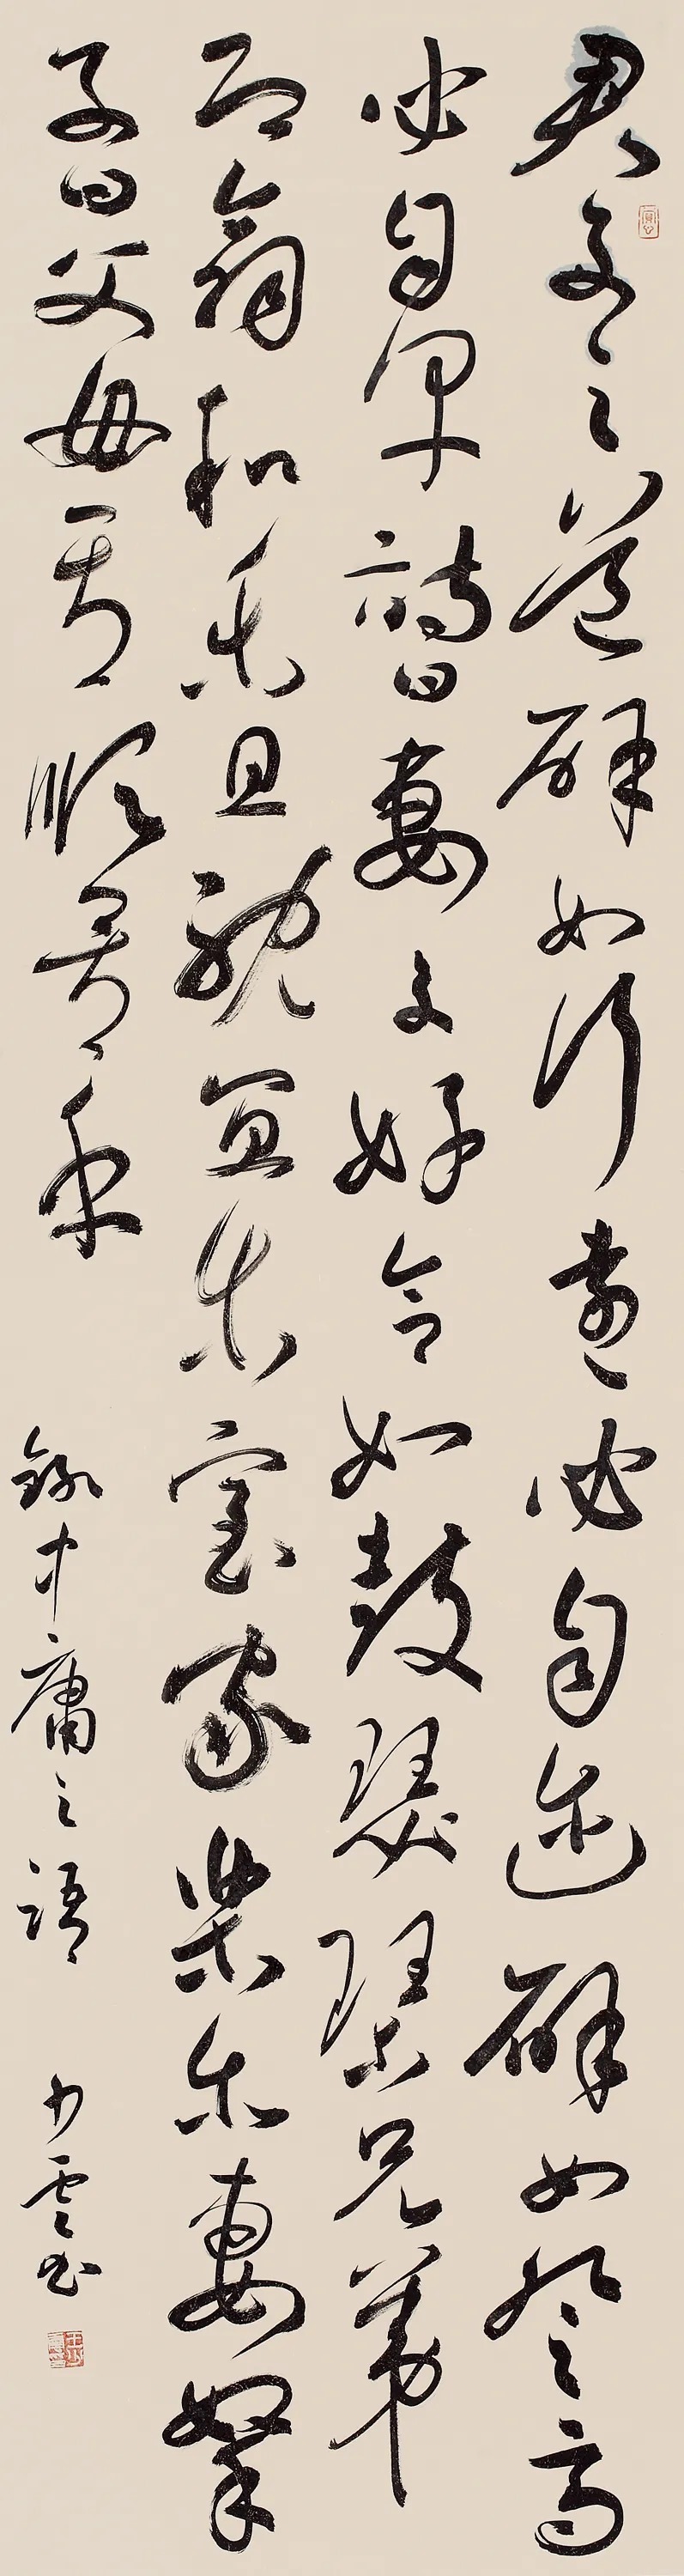 君子之道辟如行遠必自迩辟如登高
必自卑詩曰妻子好合如鼓瑟琴兄弟
既翕和樂且耽宜尔室家樂尔妻孥
子曰父母其順矣乎
錄中庸之語 少雲书